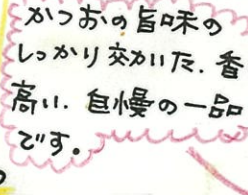 かつおの旨味の
しっかり効いた、香
高い、自慢の一品
です。